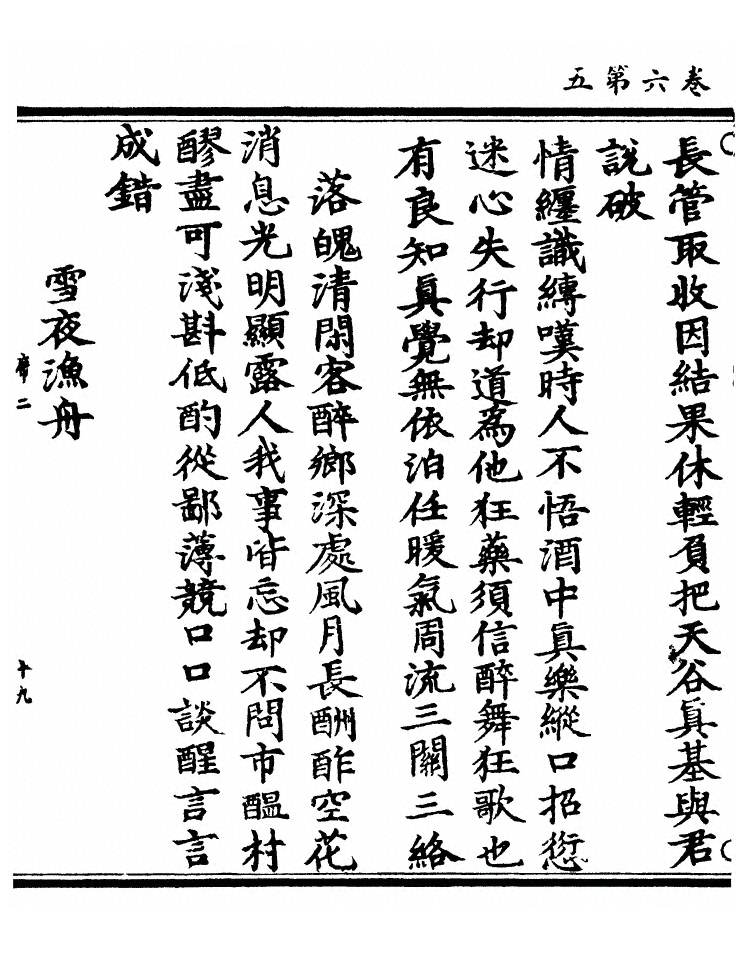 卷六第五
長管取收因結果休輕負把天谷眞基與君
說破
情纏識縛嘆時人不悟酒中眞樂縱口招愆
迷心失行却道為他狂藥須信醉舞狂歌也
有良知眞覺無依泊任暖氣周流三關三絡
落魄清閑客醉鄉深處風月長酬酢空花
消息光明顯露人我事皆忘却不問市醞村
醪盡可淺斟低酌從鄙薄競口口談醒言言
成錯
雪夜漁舟
席二
十九